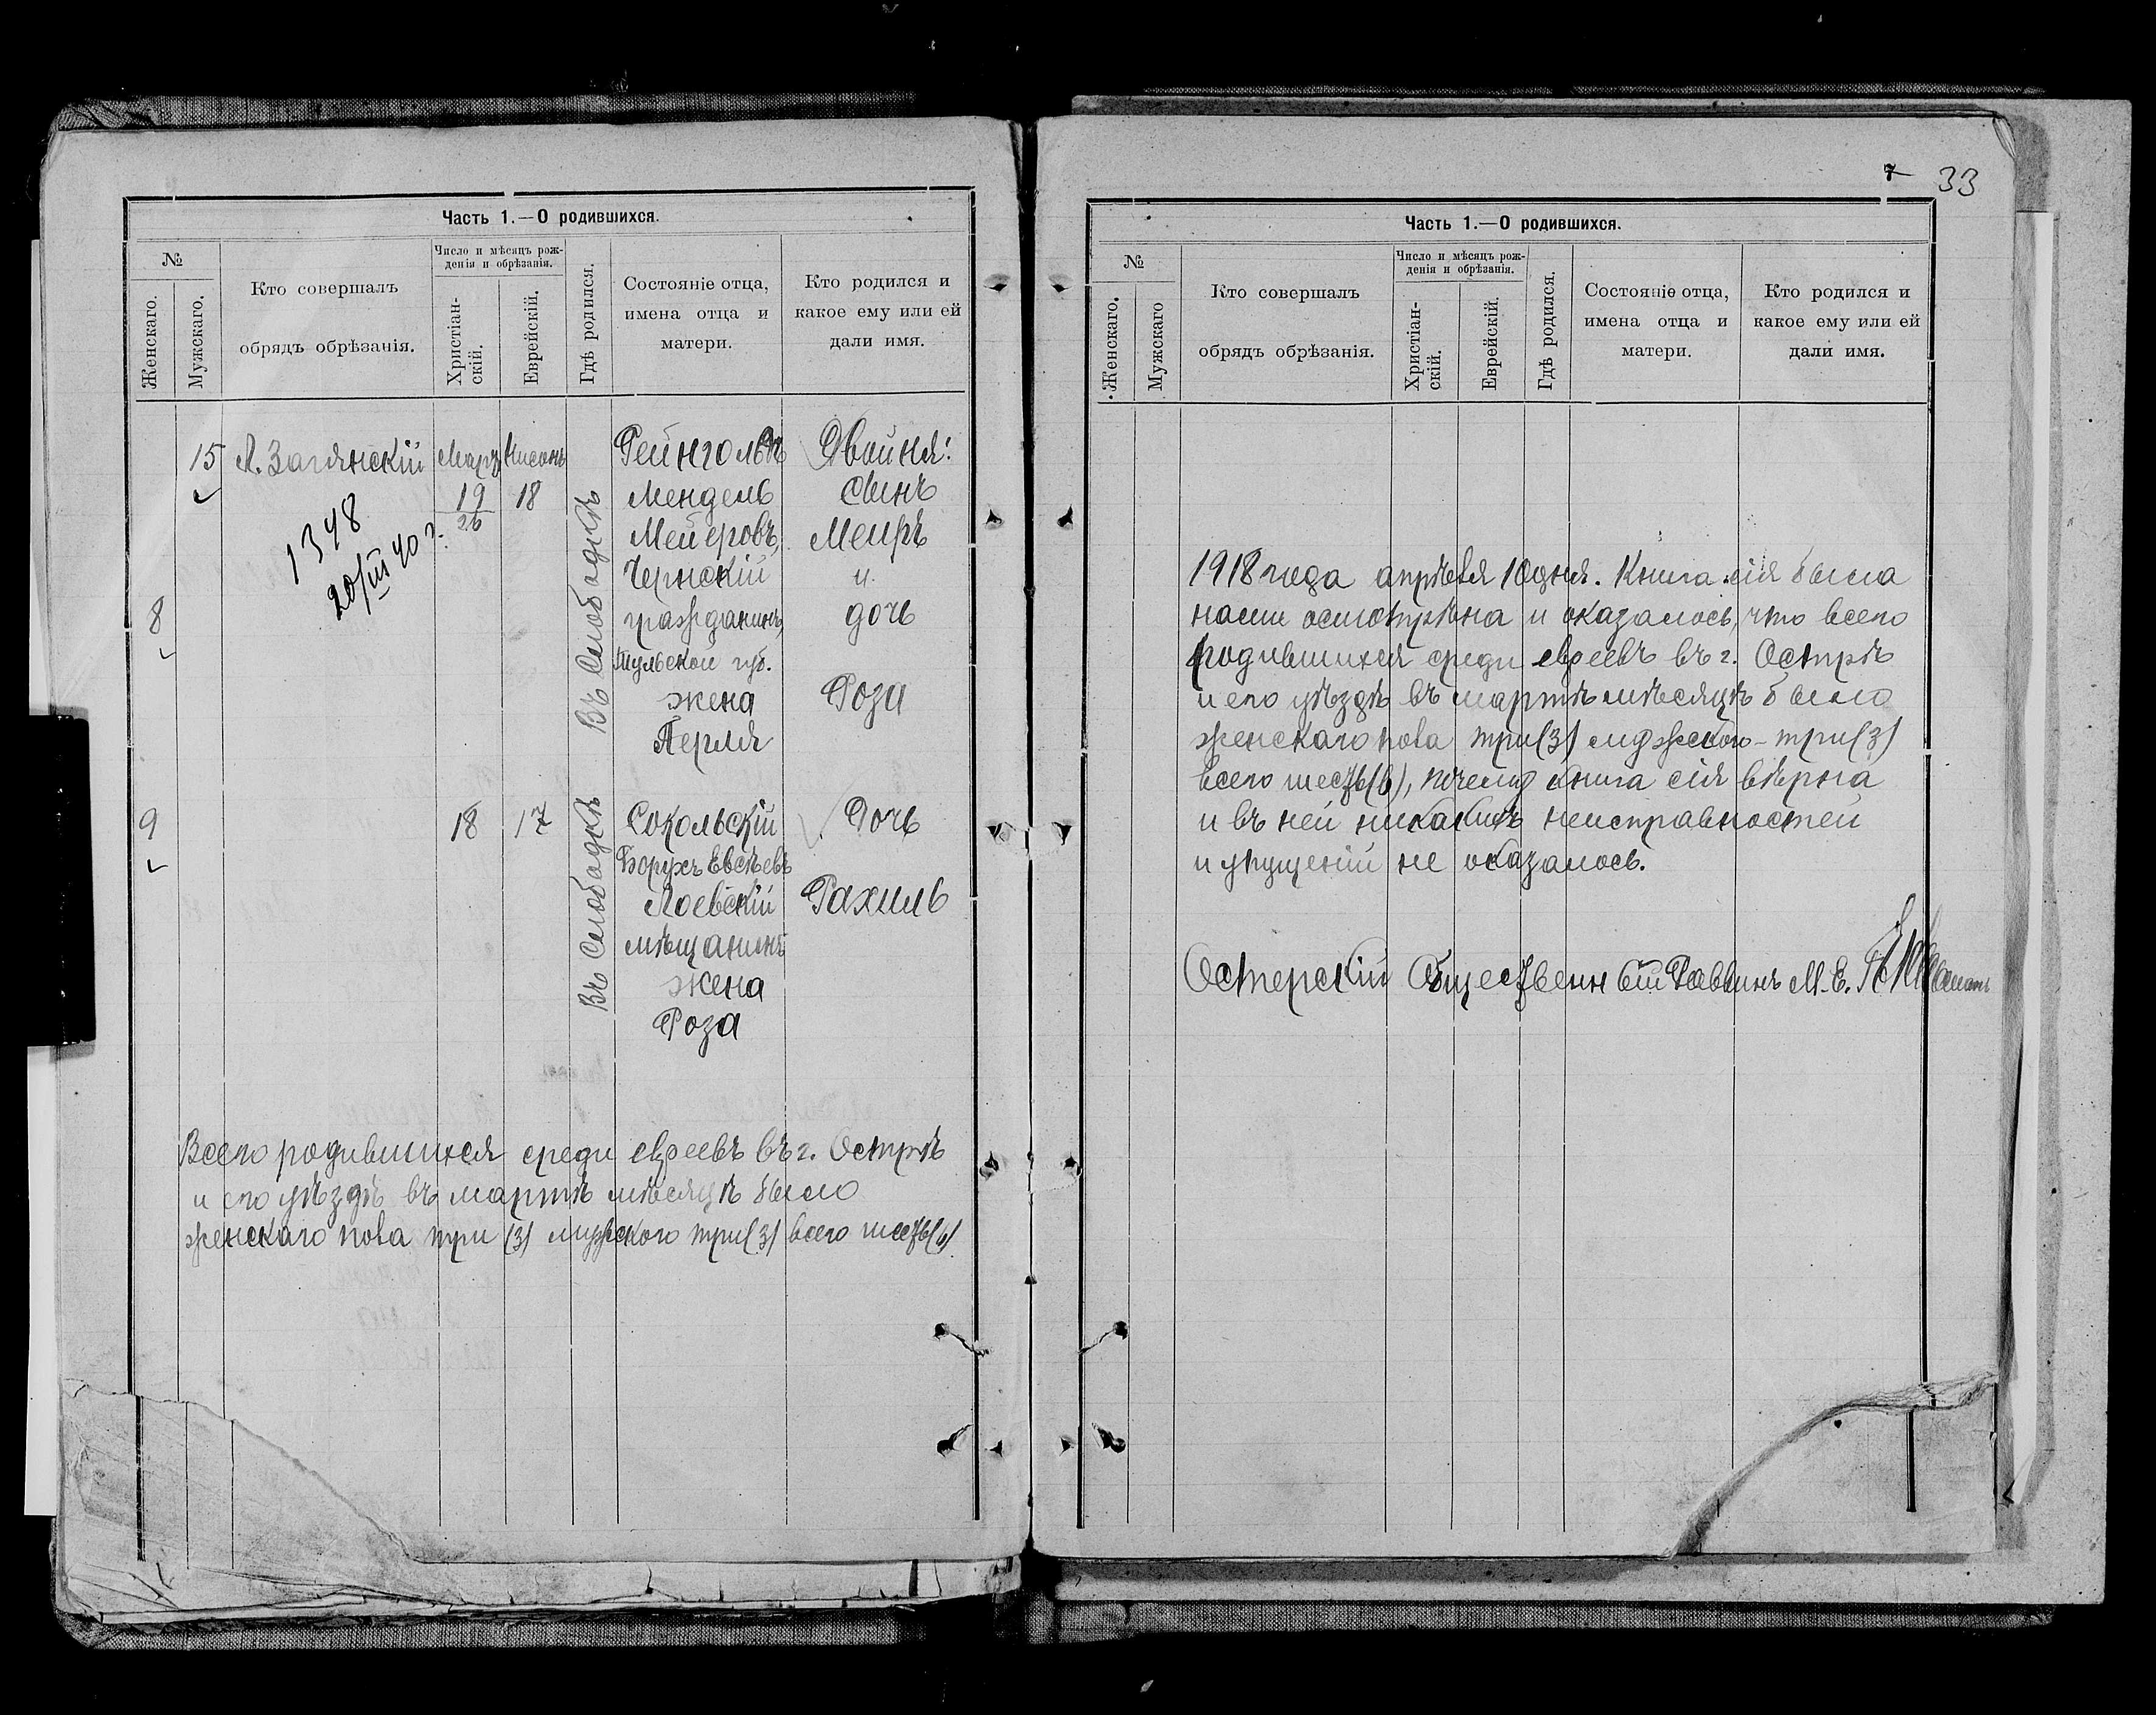 Часть 1.—О родившихся.
№
Женскаго.
Мужскаго.
Кто совершалъ
обрядъ обрѣзанія.
Число и мѣсяцъ рож-
денія и обрѣзанія.
Христіан-
скій.
Еврейскій.
Гдѣ родился.
Состояніе отца,
имена отца и
матери.
Кто родился и
какое ему или ей
дали имя.
15
Мартъ
Нисонъ
19
26
18
1348
20/III 40 г.
8
Въ Слободкѣ
Рейнгольдъ
Мендель
Мейеровъ,
Чернскій
гражданинъ,
Тульской губ.
жена
Перля
Двойня:
сынъ
Меиръ
и
дочь
Роза
9
18
17
Въ Слободкѣ
Сокольскій
Борухъ Евсѣевъ
Лоевскій
мѣщанинъ
жена
Роза
Дочь
Рахиль
Всего родившихся среди евреевъ въ г. Острѣ
и его уѣздѣ въ мартѣ мѣсяцѣ было
женскаго пола три (3) мужского три (3) всего шесть (6)
7 33
Часть 1.—О родившихся.
№
Женскаго.
Мужскаго
Кто совершалъ
обрядъ обрѣзанія.
Число и мѣсяцъ рож-
денія и обрѣзанія.
Христіан-
скій.
Еврейскій.
Гдѣ родился.
Состояніе отца,
имена отца и
матери.
Кто родился и
какое ему или ей
дали имя.
1918 года апрѣля 10 дня. Книга сія была
нами осмотрѣна и оказалось, что всего
родившихся среди евреевъ въ г. Острѣ
и его уѣздѣ въ мартѣ мѣсяцѣ было
женскаго пола три (3) мужского - три (3)
всего шесть (6), почему книга сія вѣрна
и въ ней никакихъ неисправностей
и упущеній не оказалось.
Остерскій Общественный Раввинъ М. Е.